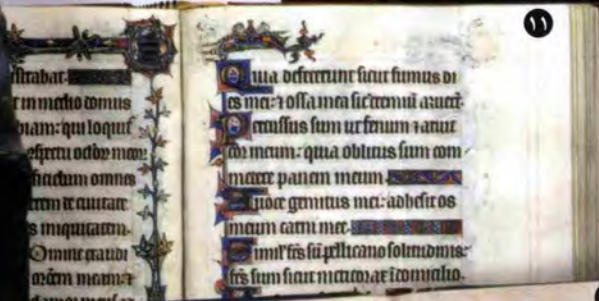 ١١
strabat.
t in medio domus
biam: qui loquit̄
cspectu oclor̄ meor̄
ficiebam omnes
erem de ciuitate
s iniquitatem.
Domine exaudi
or̄oem meam: ⁊
Quia defecerunt sicut fumus di
es mei: ⁊ ossa mea sic̄ cremiū aruer̄t.
Percussus sum ut fenum ⁊ aruit
cor meum: quia oblitus sum com
medere panem meum.
A uoce gemitus mei: adhesit os
meum carni mee.
Simil' fc̄s sū pellicano solitudinis:
fc̄s sum sicut nicticorax ī domicilio.